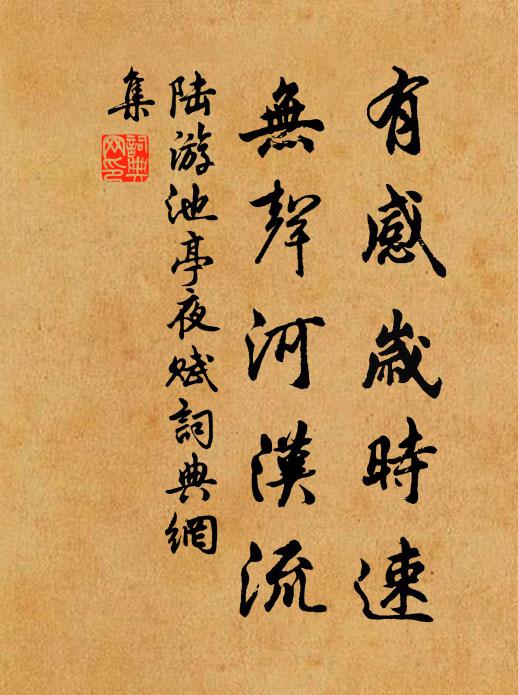 有感歲時速
無聲河漢流
陆游池亭夜赋詞典網
集
詞典網印